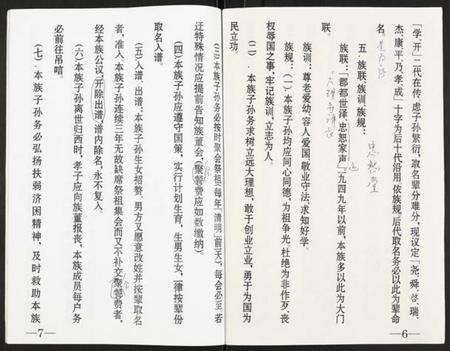 「学、开」二代在传,虑子孙繁衍,取名辈分难分,现议定「尧、舜、启、瑞、
杰、康、平、乃、孝、成」二十字为后十代沿用,依族规,后代取名务必以此为辈命
名。
五、族联、族训、族规:
族联:「郡都世泽,忠恕家声」,一九四九年以前,本族多以此为大门
联。
族训:尊老爱幼,容人爱国,敬业守法,求知好学。
族规:(一)、本族子孙均应同心同德,为祖争光,杜绝为非作歹、丧
权辱国之事,牢记族训,立志为人。
(二)、本族子孙务求树立远大理想,敢于创业立业,勇于为国为
民立功。
—6—
(三)、本族子孙务必按时聚会祭祖,每年「清明」前二天,每会必至,若
迂特殊情况应提前告知族董会,(聚餐费应如数缴纳)。
(四)、本族子孙应遵守国策,实行计划生育,生男生女,一律按辈份
取名入谱。
(五)、入谱、出谱:本族子孙女生招赘,男方又愿意改姓并按辈取名
者,准入,本族子孙连续三年无故缺席祭祖集会而又不补交聚餐费者,
经本族公议,开除出谱,谱内除名,永不复入。
(六)、本族子孙离世归西时,孝子应向族董报丧,本族成员每户务
必前往吊唁。
(七)、本族子孙务必弘扬扶弱济困精神,及时救助本族
—7—